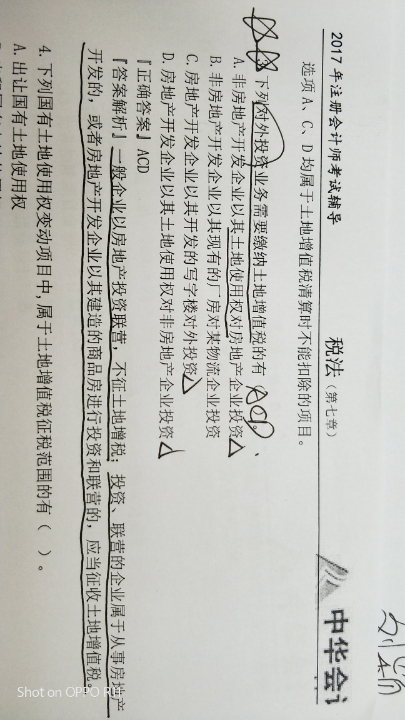 2017年注册会计师考试辅导
税法（第七章）
中华会计
选项A、C、D均属于土地增值税清算时不能扣除的项目。
下列对外投资业务需要缴纳土地增值税的有（ACD）。
A. 非房地产开发企业以其土地使用权对房地产企业投资
B. 非房地产开发企业以其现有的厂房对某物流企业投资
C. 房地产开发企业以其开发的写字楼对外投资
D. 房地产开发企业以其土地使用权对非房地产企业投资
『正确答案』ACD
『答案解析』一般企业以房地产投资联营，不征土地增税；投资、联营的企业属于从事房地产
开发的，或者房地产开发企业以其建造的商品房进行投资和联营的，应当征收土地增值税。
4. 下列国有土地使用权变动项目中，属于土地增值税征税范围的有（ ）。
A. 出让国有土地使用权
Shot on OPPO R